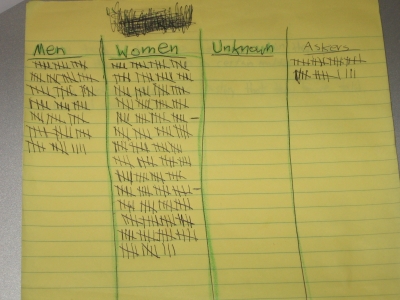 Men Women Unknown Askers